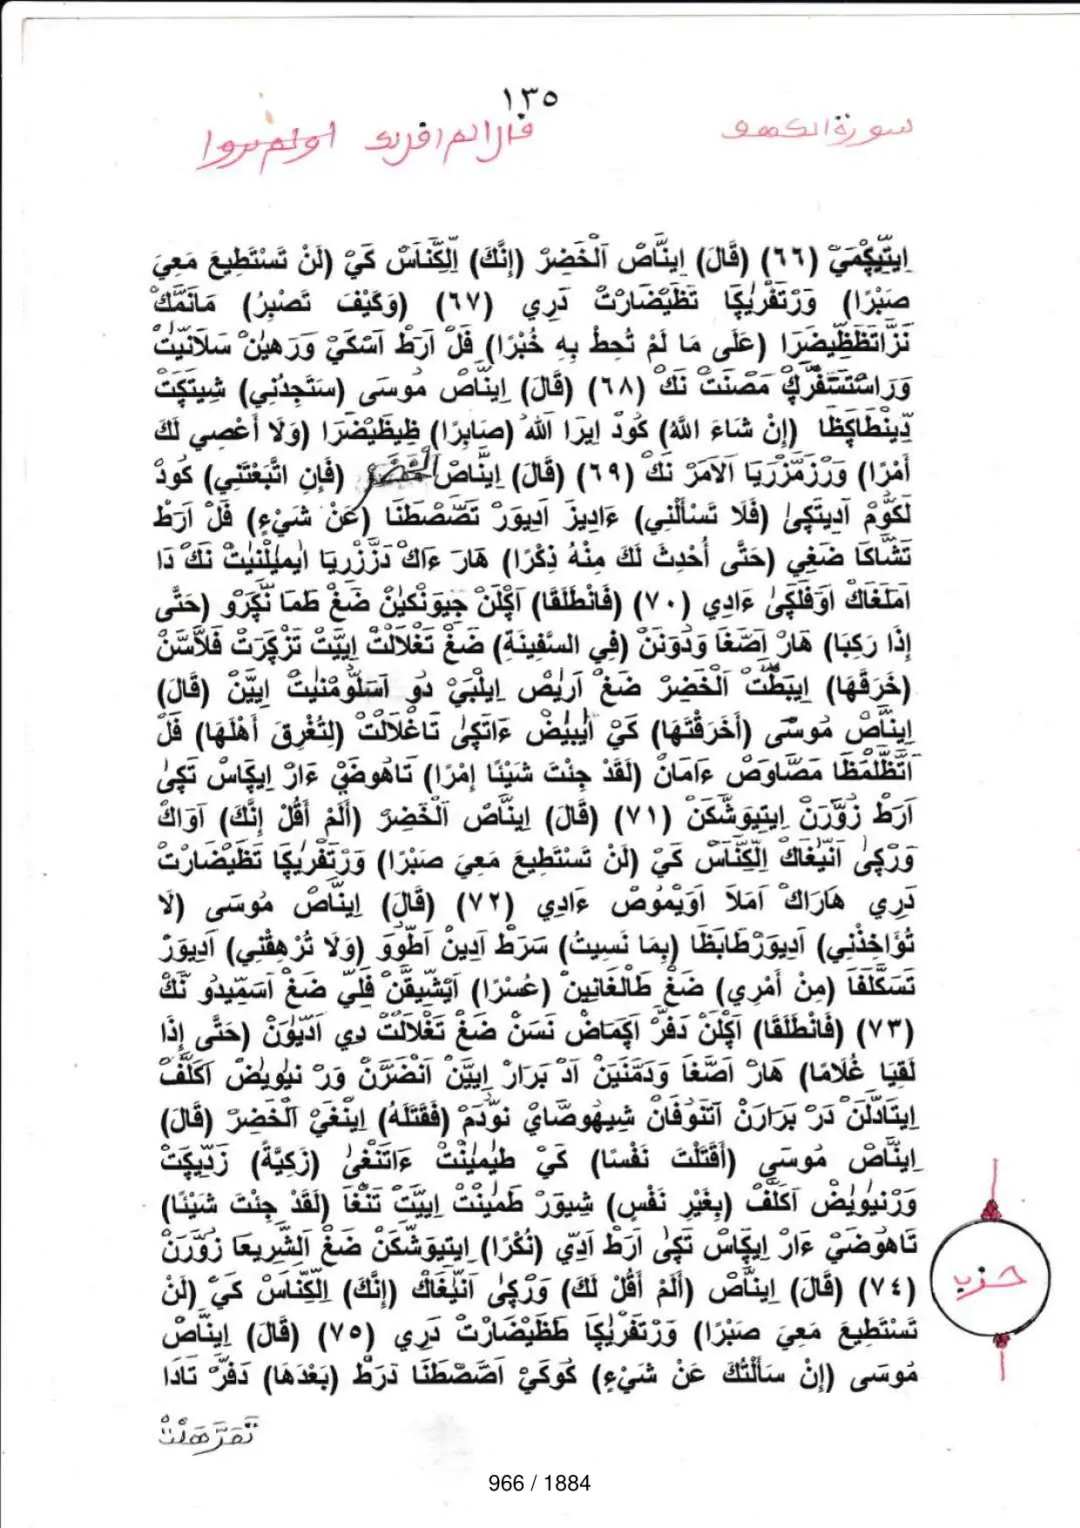 ١٣٥
سورة الكهف
قال الم اقل لك اولم يروا
اِيتِّيكْمَيْ (٦٦) (قَالَ) اِينَّاصْ اَلْخَضِرْ (إِنَّكَ) اِلْكَنَاسْ كَيْ (لَنْ تَسْتَطِيعَ مَعِيَ
صَبْرًا) وَرْتَفْرِيكَا تَظَيْضَارْتْ دَرِي (٦٧) (وَكَيْفَ تَصْبِرُ) مَانَمَّكْ
نَزَّاتَظَظَّيضَرَا (عَلَى مَا لَمْ تُحِطْ بِهِ خُبْرًا) فَلْ اَرَطْ اَسْكَيْ وَرَهِينْ سَلَانِيتْ
وَرَاسْتَسْفَرَكْ مَصْنَتْ نَكْ (٦٨) (قَالَ) اِينَّاصْ مُوسَى (سَتَجِدُنِي) شِيتَكِتْ
دِّينْطَاكَظَا (إِنْ شَاءَ اللَّهُ) كُودْ اِيرَا اَللهْ (صَابِرًا) ظِيظَيْضَرَا (وَلَا أَعْصِي لَكَ
أَمْرًا) وَرْزَمَّزْرِيَا اَلَامَرْ نَكْ (٦٩) (قَالَ) اِينَّاصْ الخضر (فَإِنِ اتَّبَعْتَنِي) كُودْ
لَكُّومْ آدِيتَكِى (فَلَا تَسْأَلْنِي) ءَادِيزْ اَدِيوَرْ تَصَّصْطَنَا (عَنْ شَيْءٍ) فَلْ اَرَطْ
تَشَّاكَا ضَغِي (حَتَّى أُحْدِثَ لَكَ مِنْهُ ذِكْرًا) هَارْ ءَاكْ دَزَّزْرِيَا اَيْمِيلْنِيتْ نَكْ دَا
اَمَلَغَاكْ اَوْفَلْكِى ءَادِي (٧٠) (فَانْطَلَقَا) اَكْلَنْ جِيوَنْكِينْ ضَغْ طَمَا نَّكَرَوْ (حَتَّى
إِذَا رَكِبَا) هَارْ اَصَّغَا وَدَوَنَنْ (فِي السَّفِينَةِ) ضَغْ تَغْلَالَتْ اِيَّيتْ تَزْكَرَتْ فَلَاسَّنْ
(خَرَقَهَا) اِيبَطَّتْ اَلْخَضِرْ ضَغْ اَرِيْصْ اِيلْبَيْ دُو اَسَلُّومْنِيتْ اِيَّيْنْ (قَالَ)
اِينَّاصْ مُوسَى (أَخَرَقْتَهَا) كَيْ اَيْبِيْضْ ءَاتَكِى تَاغْلَالَتْ (لِتُغْرِقَ أَهْلَهَا) فَلْ
اَتَّظَلْمَظَا مَصَّاوَصْ ءَامَانْ (لَقَدْ جِئْتَ شَيْئًا إِمْرًا) تَاهُوضَيْ ءَارْ اِيكَاسْ تَكِى
اَرَطْ زُوَّرَنْ اِيتِيوَشْكَنْ (٧١) (قَالَ) اِينَّاصْ اَلْخَضِرْ (أَلَمْ أَقُلْ إِنَّكَ) آوَاكْ
وَرْكِى اَنِّيغَاكْ اِلْكَنَاسْ كَيْ (لَنْ تَسْتَطِيعَ مَعِيَ صَبْرًا) وَرْتَفْرِيكَا تَظَيْضَارْتْ
دَرِي هَارَاكْ اَمَلَا اَوَيْمُوصْ ءَادِي (٧٢) (قَالَ) اِينَّاصْ مُوسَى (لَا
تُؤَاخِذْنِي) اَدِيوَرْطَابَظَا (بِمَا نَسِيتُ) سَرَطْ اَدِينْ اَطْوَوَ (وَلَا تُرْهِقْنِي) اَدِيوَرْ
تَسَكَّلَفَا (مِنْ أَمْرِي) ضَغْ طَالْغَانِينْ (عُسْرًا) اَيْشِّيقَّنْ فَلِّي ضَغْ اَسَمِّيدُو نَّكْ
(٧٣) (فَانْطَلَقَا) اَكْلَنْ دَفَّرْ اَكِمَاضْ نَسَنْ ضَغْ تَغْلَالَتْ دِي اَدِّيْوَنْ (حَتَّى إِذَا
لَقِيَا غُلَامًا) هَارْ اَصَّغَا وَدَمَّنَيَنْ اَدْ بَرَارْ اِيَّيْنْ اَنْضَرَّنْ وَرْ نِيْويضْ اَكَلَّفْ
اِيتَادَّلَنْ دَرْ بَرَارَنْ آتَنُوفَانْ شِيهُوصَايْ نُودَمْ (فَقَتَلَهُ) اِينْغَيْ اَلْخَضِرْ (قَالَ)
اِينَّاصْ مُوسَى (أَقَتَلْتَ نَفْسًا) كَيْ طَيْمِيْنْتْ ءَاتَنْغَى (زَكِيَّةً) زَدِّيكَتْ
وَرْنِيْويْضْ آكَلَّفْ (بِغَيْرِ نَفْسٍ) شِيوَرْ طَمِيْنْتْ اِيَّيَتْ تَنْغَا (لَقَدْ جِئْتَ شَيْئًا)
تَاهُوضَيْ ءَارْ اِيكَاسْ تَكِى اَرَطْ اَدِّي (نُكْرًا) اِيتِيوَشْكَنْ ضَغْ اَلشَّرِيعَا زُوَّرَنْ
(٧٤) (قَالَ) اِينَّاصْ (أَلَمْ أَقُلْ لَكَ) وَرْكِى اَنِّيغَاكْ (إِنَّكَ) اِلْكَنَاسْ كَيْ (لَنْ
تَسْتَطِيعَ مَعِيَ صَبْرًا) وَرْتَفْرِيكَا طَظَيْضَارْتْ دَرِي (٧٥) (قَالَ) اِينَّاصْ
مُوسَى (إِنْ سَأَلْتُكَ عَنْ شَيْءٍ) كُوكَيْ اَصَّصْطَنَا دَرَطْ (بَعْدَهَا) دَفَّرْ تَادَا
حزب
966 / 1884